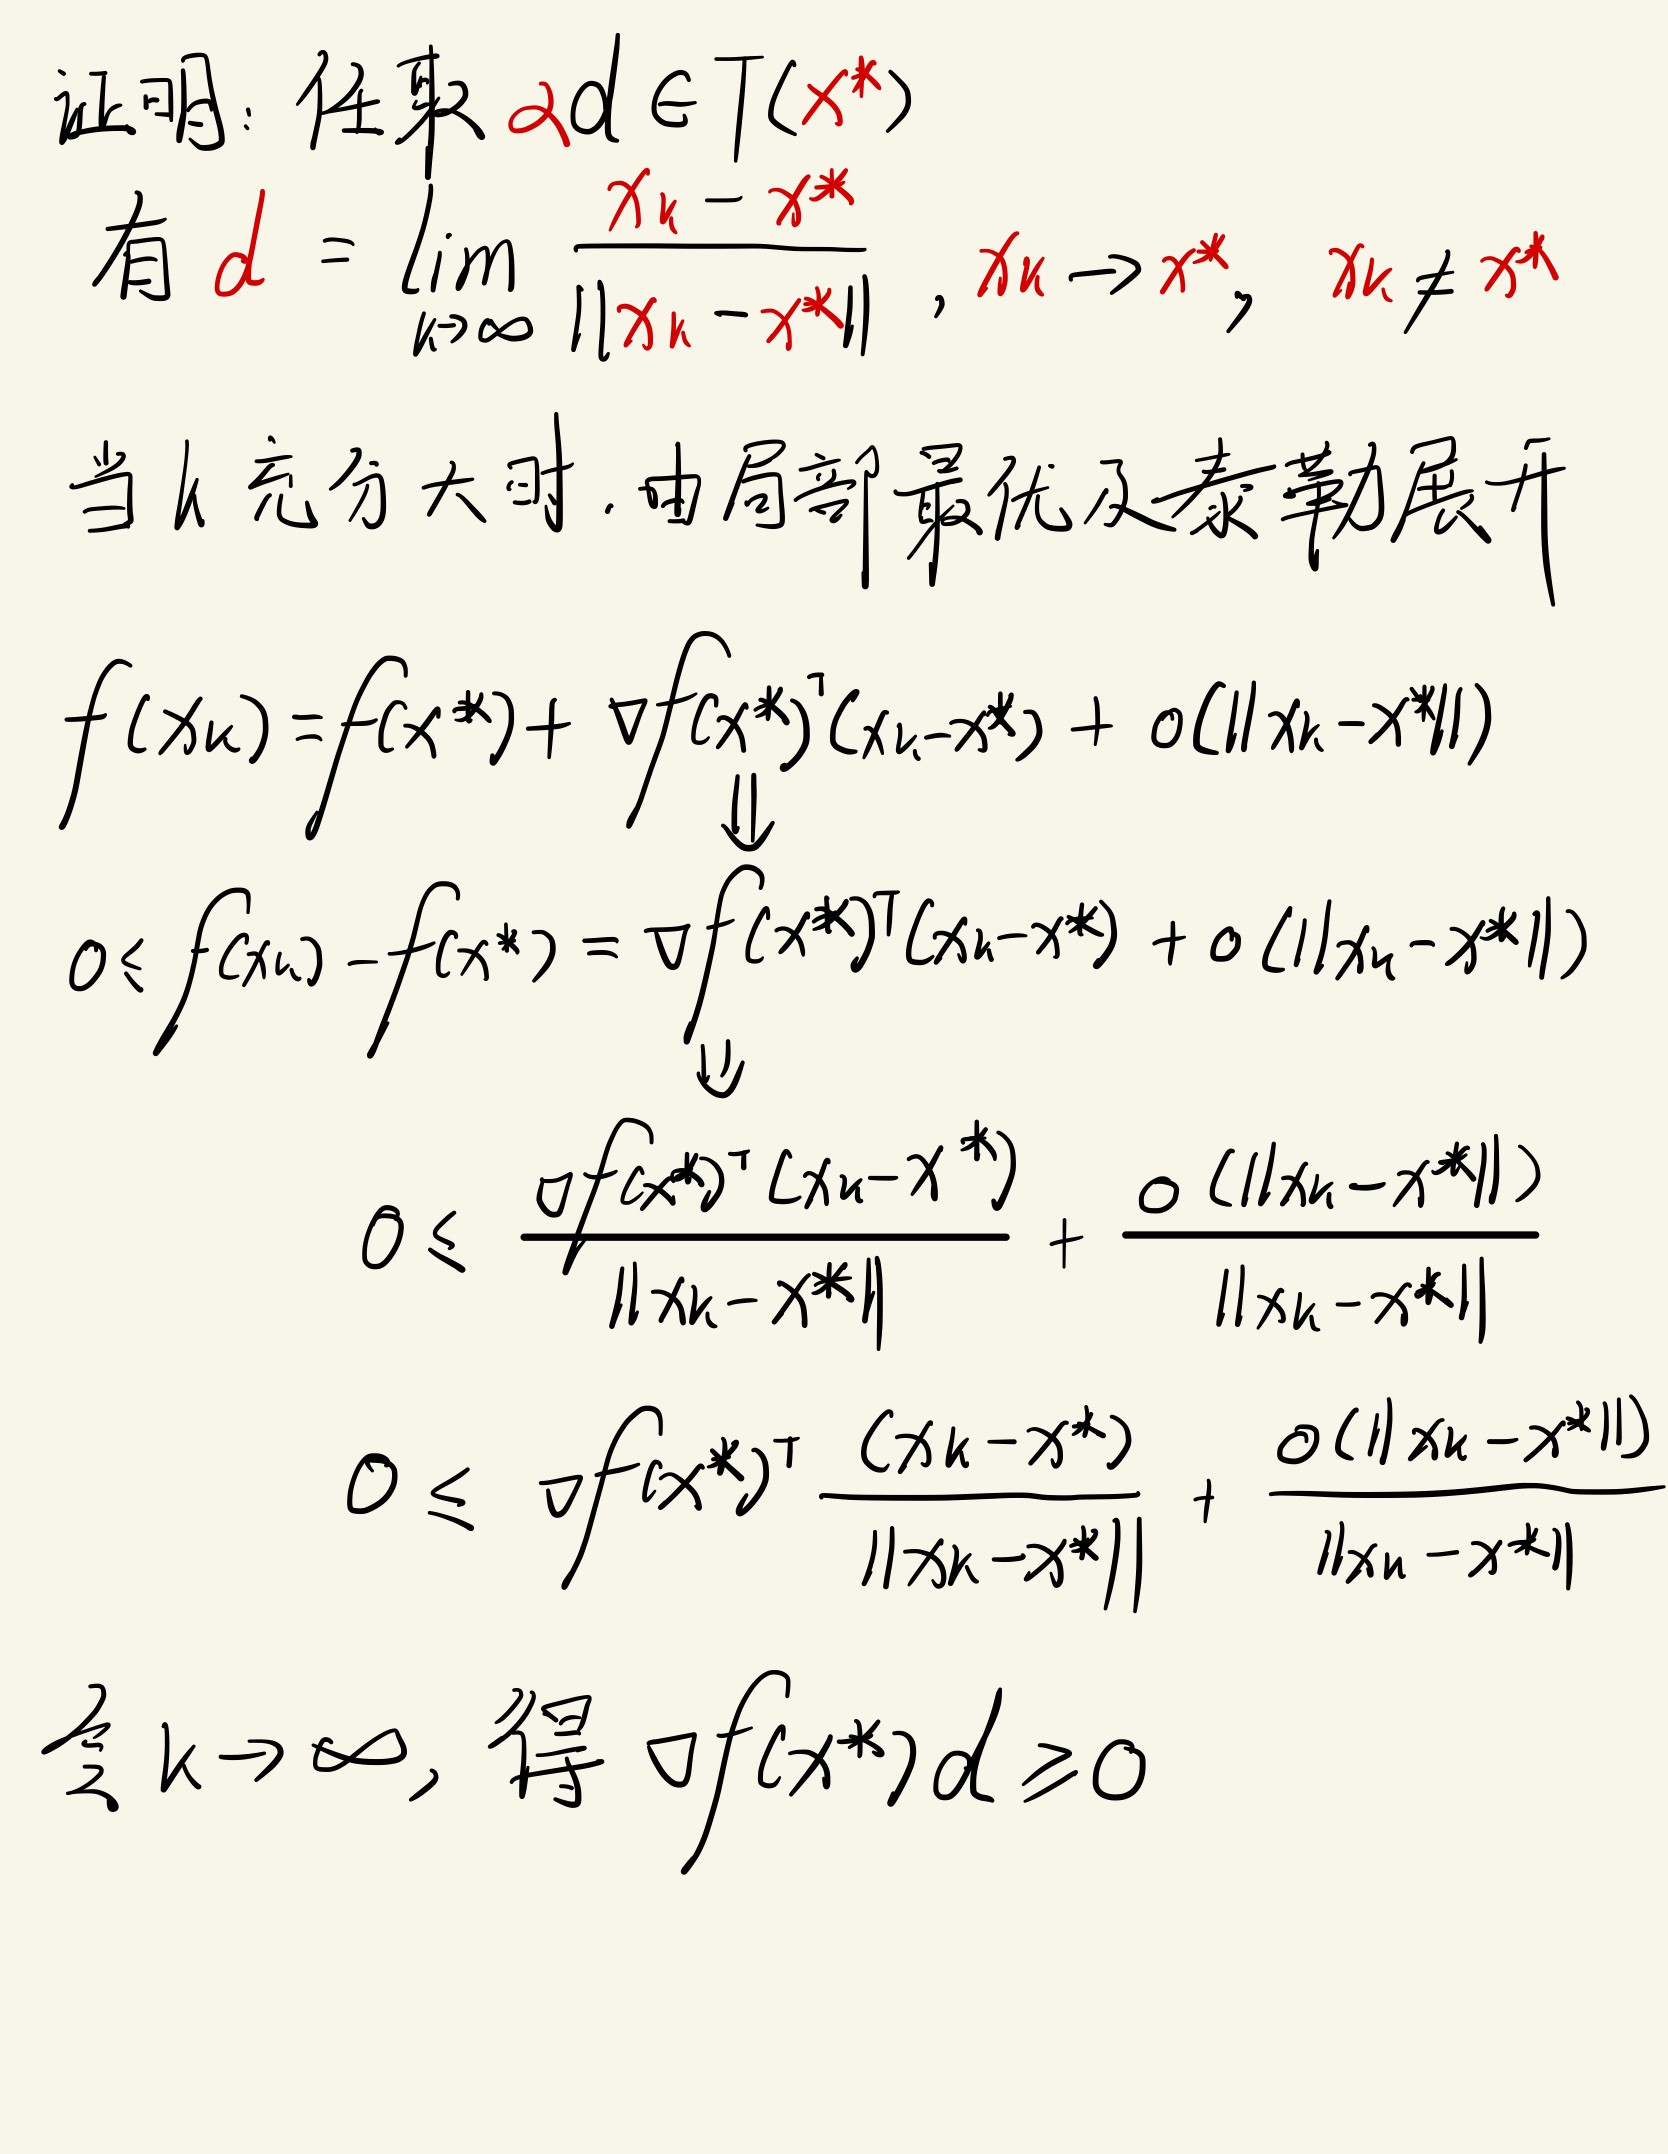 证明: 任取 αd ∈ T(x*)
有 d = lim_{k→∞} (x_k - x*) / ||x_k - x*|| , x_k → x*, x_k ≠ x*
当 k 充分大时. 由局部最优及泰勒展开
f(x_k) = f(x*) + ∇f(x*)^T (x_k - x*) + o(||x_k - x*||)
⇓
0 ≤ f(x_k) - f(x*) = ∇f(x*)^T (x_k - x*) + o(||x_k - x*||)
⇓
0 ≤ ∇f(x*)^T (x_k - x*) / ||x_k - x*|| + o(||x_k - x*||) / ||x_k - x*||
0 ≤ ∇f(x*)^T (x_k - x*) / ||x_k - x*|| + o(||x_k - x*||) / ||x_k - x*||
令 k → ∞, 得 ∇f(x*)d ≥ 0